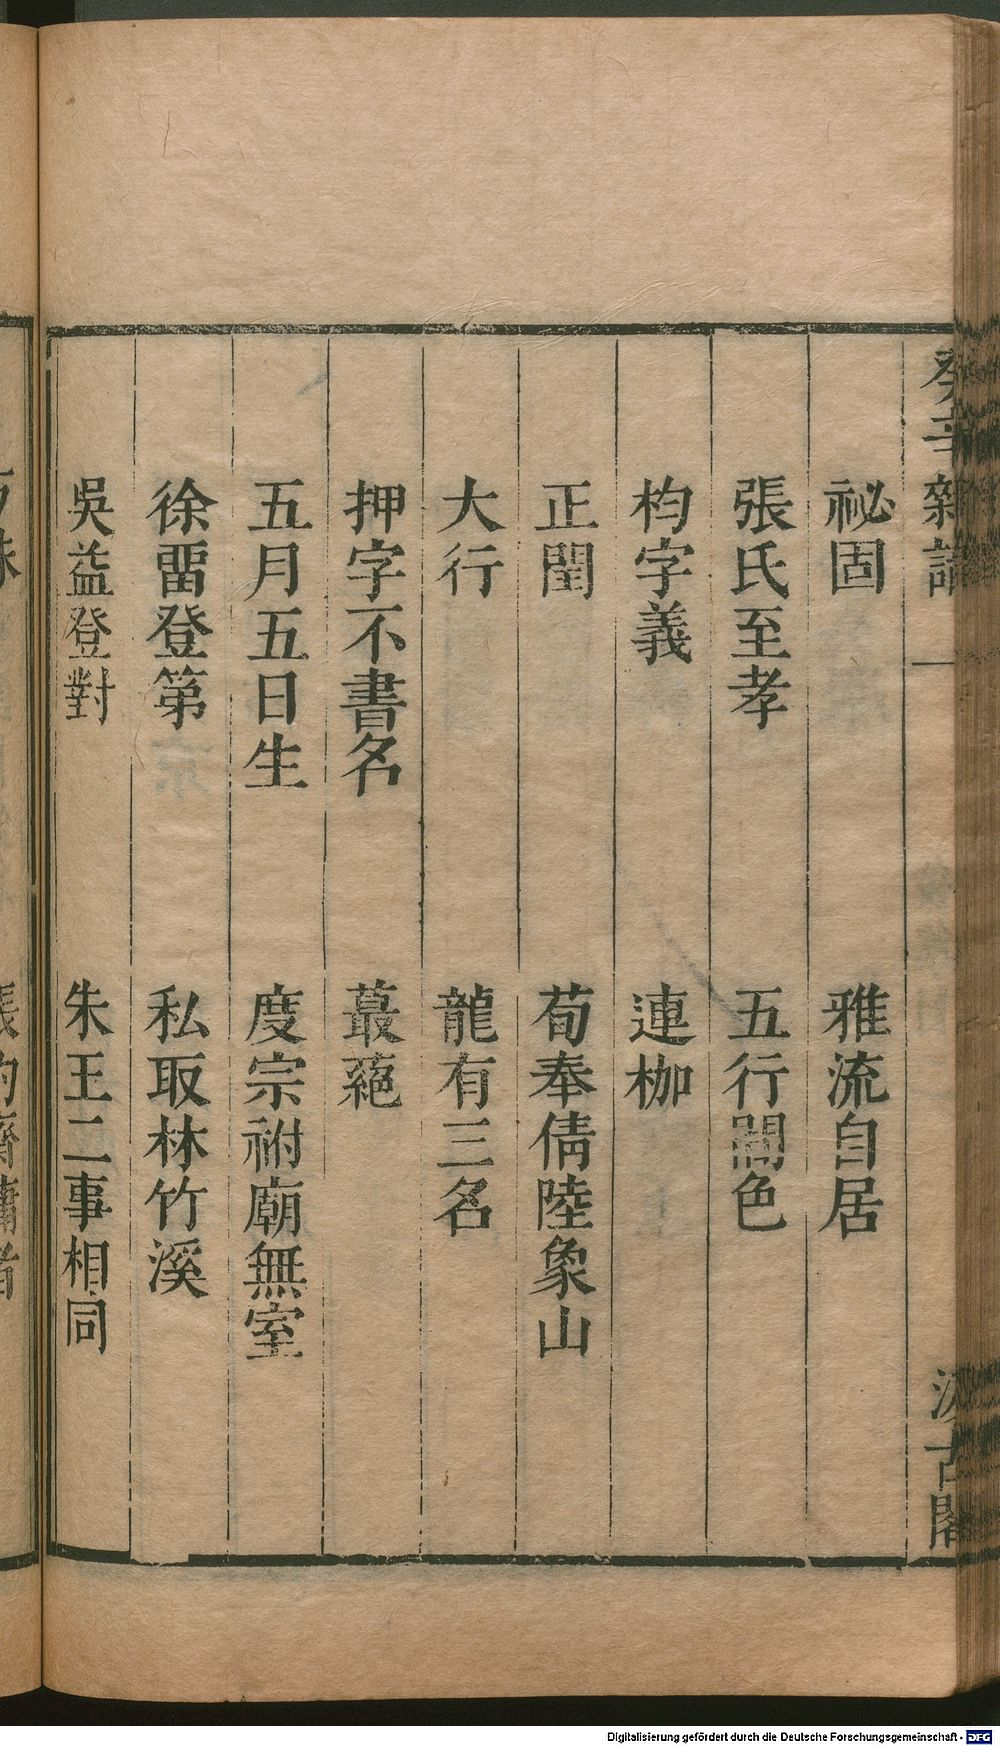 癸辛雜識 一 汲古閣
祕固 雅流自居
張氏至孝 五行間色
枃字義 連枷
正閏 荀奉倩陸象山
大行 龍有三名
押字不書名 蕞蕝
五月五日生 度宗祔廟無室
徐霤登第 私取林竹溪
吳益登對 朱王二事相同
Digitalisierung gefördert durch die Deutsche Forschungsgemeinschaft - DFG